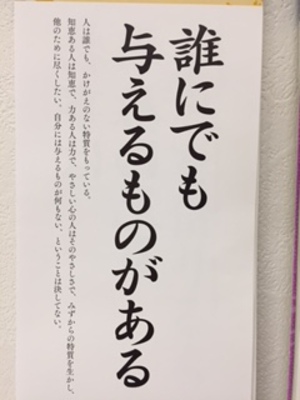 誰にでも
与えるものがある
人は誰でも、かけがえのない特質をもっている。
知恵ある人は知恵で、力ある人は力で、やさしい心の人はそのやさしさで、みずからの特質を生かし、
他のために尽くしたい。自分には与えるものが何もない、ということは決してない。